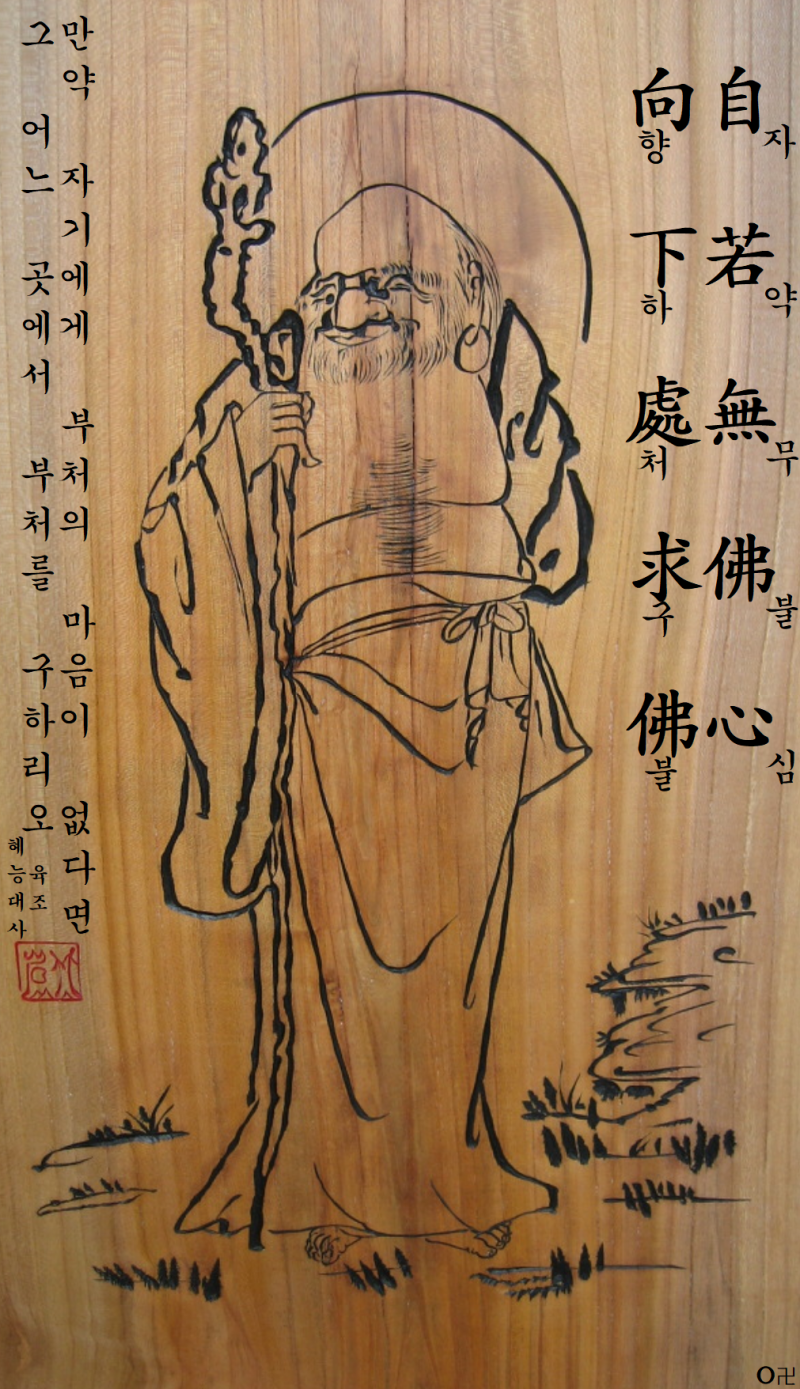 自若無佛心
자약무불심
向下處求佛
향하처구불
만약 자기에게 부처의 마음이 없다면
그 어느 곳에서 부처를 구하리오
육조
혜능대사
O卍